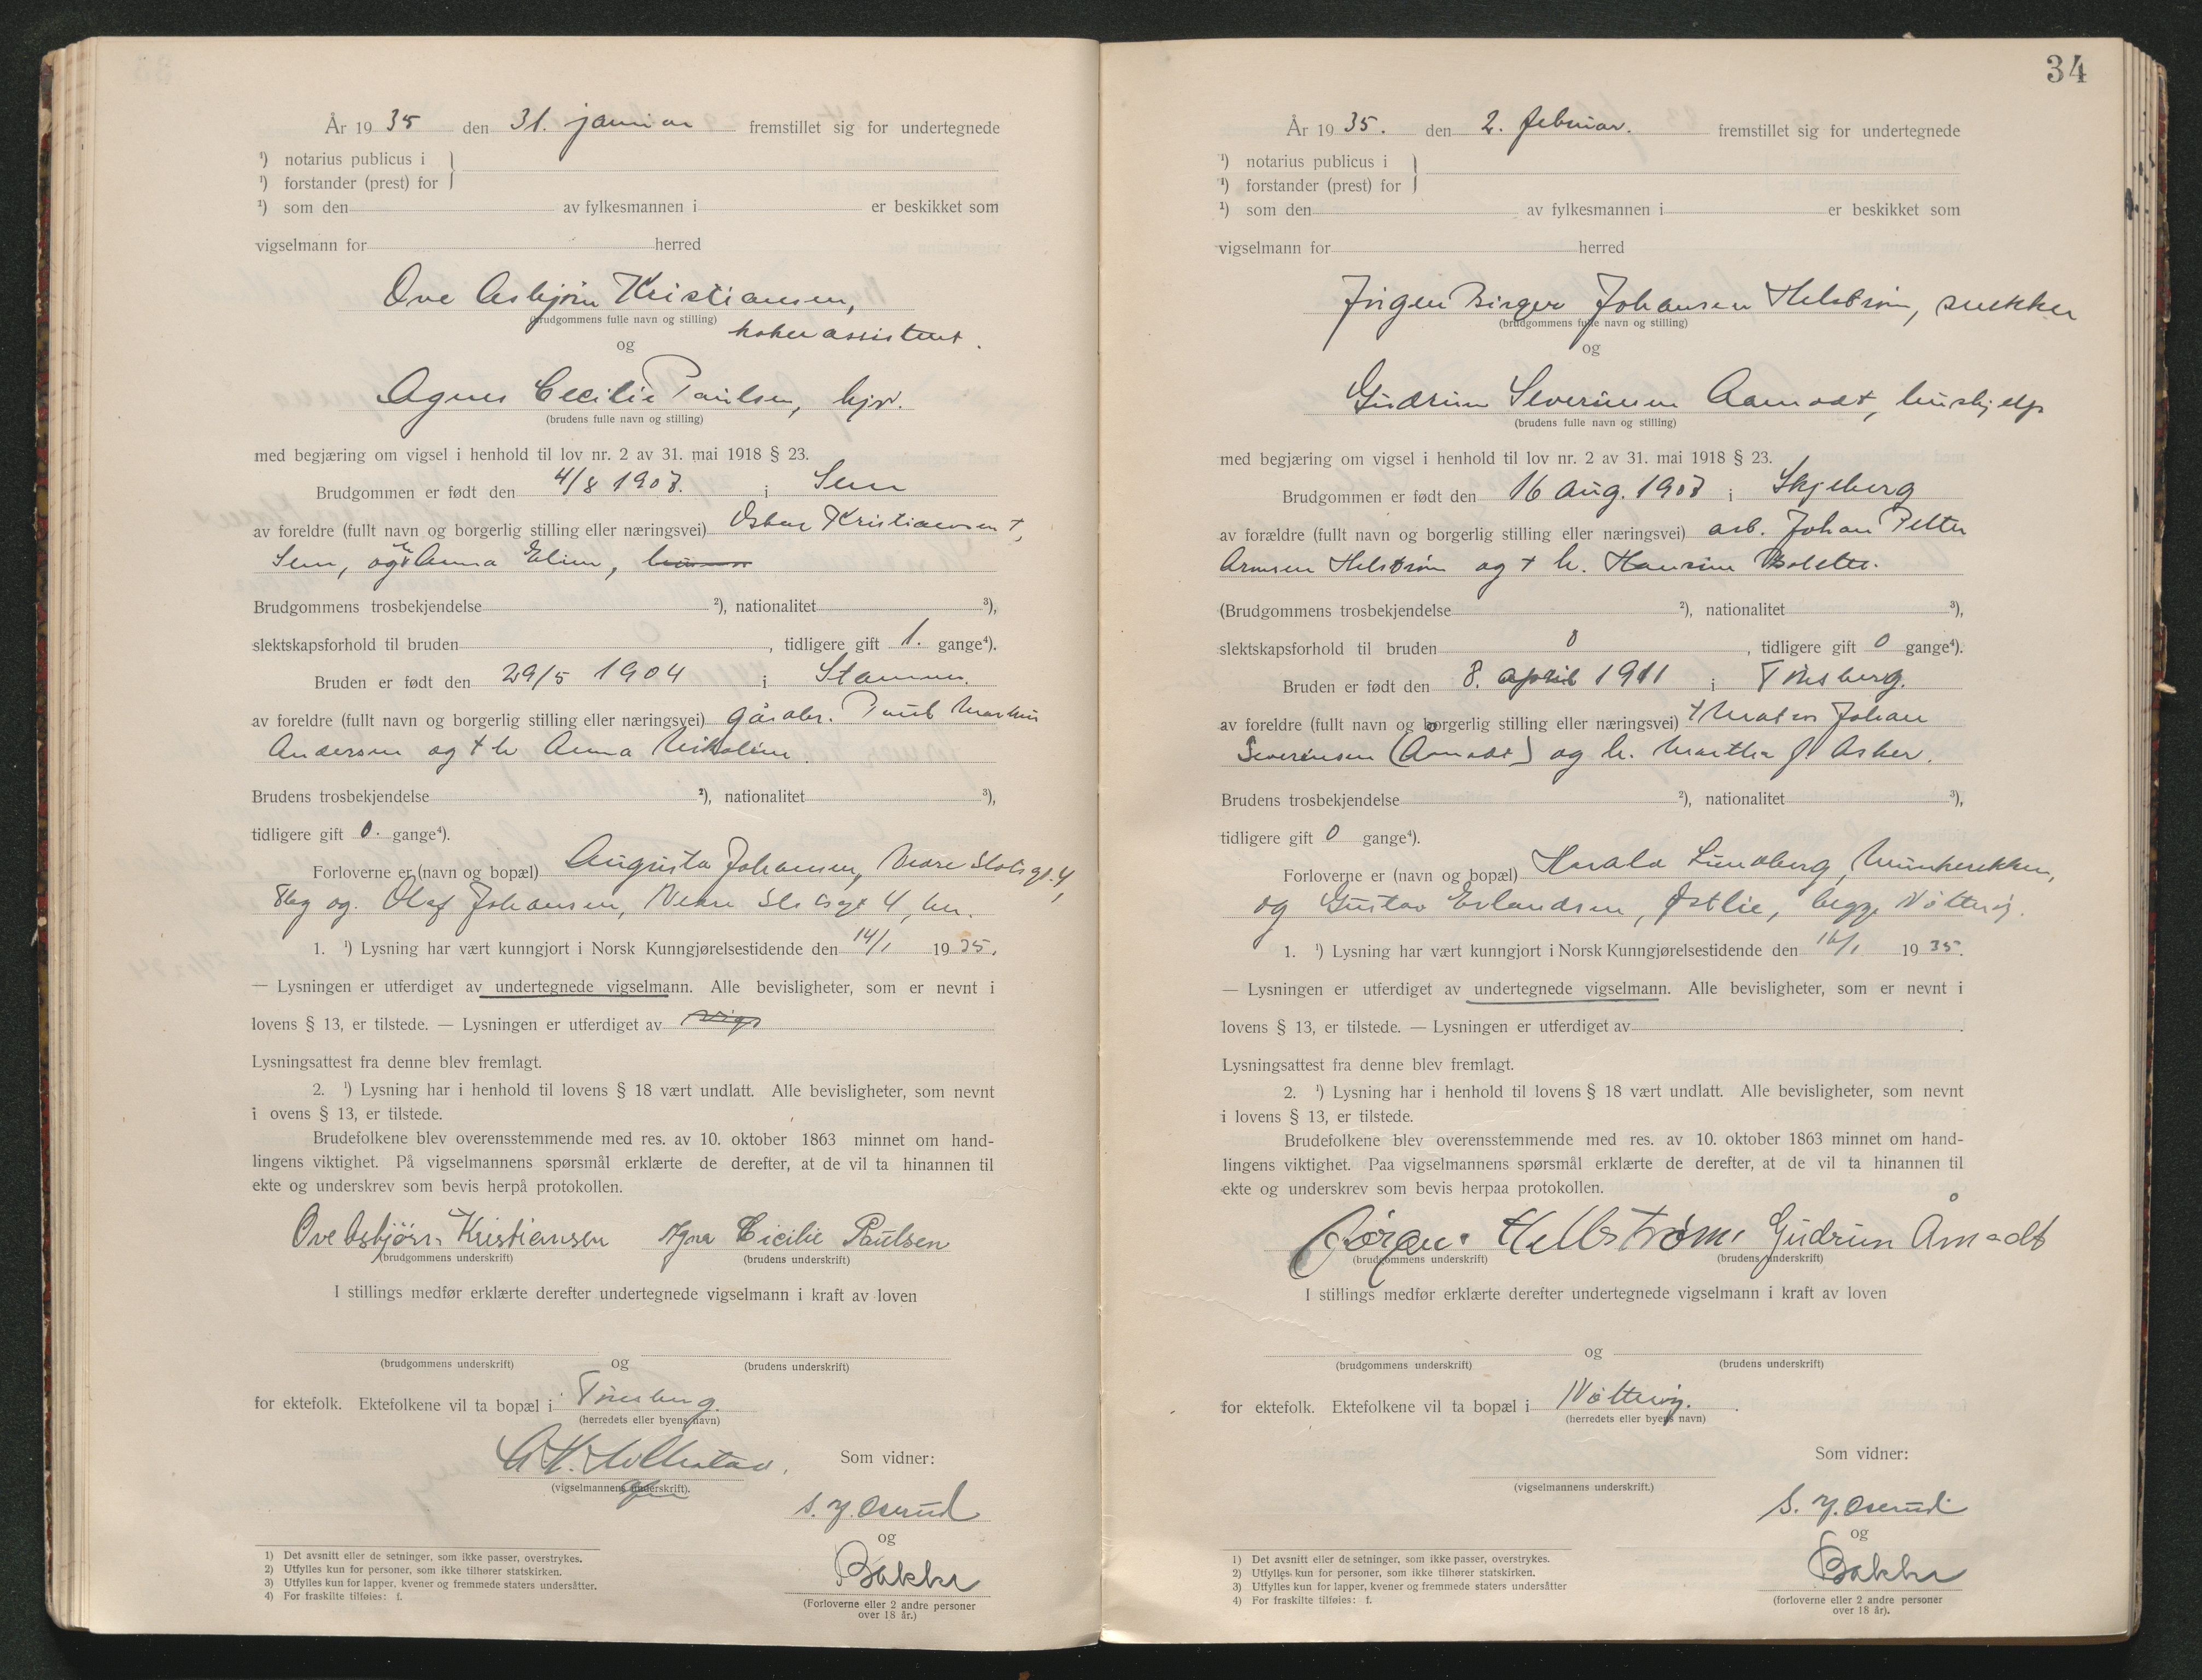 År 19 35 den 31. januar fremstillet sig for undertegnede
¹) notarius publicus i
¹) forstander (prest) for
¹) som den av fylkesmannen i er beskikket som
vigselmann for herred
Ove Asbjørn Kristiansen,
(brudgommens fulle navn og stilling)
og
Agnes Cecilie Paulsen, hjv.
(brudens fulle navn og stilling)
med begjæring om vigsel i henhold til lov nr. 2 av 31. mai 1918 § 23.
Brudgommen er født den 4/8 1903. i Sem
av foreldre (fullt navn og borgerlig stilling eller næringsvei) Oskar Kristiansen †,
Sem, og Anna Eline,
Brudgommens trosbekjendelse ²), nationalitet ³),
slektskapsforhold til bruden , tidligere gift 1. gange⁴).
Bruden er født den 29/5 1904 i Stamnes.
av foreldre (fullt navn og borgerlig stilling eller næringsvei) gårdbr. Paul Markus
Andersen og † h Anna Nikoline.
Brudens trosbekjendelse ²), nationalitet ³),
tidligere gift 0. gange⁴).
Forloverne er (navn og bopæl) Augusta Johansen, Nedre Slotsgt. 4,
Tbg og Olaf Johansen, Nedre Slotsgt 4, her.
1. ¹) Lysning har vært kunngjort i Norsk Kunngjørelsestidende den 14/1 19 35.
— Lysningen er utferdiget av undertegnede vigselmann. Alle bevisligheter, som er nevnt i
lovens § 13, er tilstede. — Lysningen er utferdiget av vigs
Lysningsattest fra denne blev fremlagt.
2. ¹) Lysning har i henhold til lovens § 18 vært undlatt. Alle bevisligheter, som nevnt
i ovens § 13, er tilstede.
Brudefolkene blev overensstemmende med res. av 10. oktober 1863 minnet om hand-
lingens viktighet. På vigselmannens spørsmål erklærte de derefter, at de vil ta hinannen til
ekte og underskrev som bevis herpå protokollen.
Ove Asbjörn Kristiansen Agnes Cicilie Paulsen
(brudgommens underskrift) (brudens underskrift)
I stillings medfør erklærte derefter undertegnede vigselmann i kraft av loven
og
(brudgommens underskrift) (brudens underskrift)
for ektefolk. Ektefolkene vil ta bopæl i Tønsberg.
(herredets eller byens navn)
Som vidner:
(vigselmannens underskrift).
S. Y. Oserud
og
Bakke
(Forloverne eller 2 andre personer
over 18 år.)
1) Det avsnitt eller de setninger, som ikke passer, overstrykes.
2) Utfylles kun for personer, som ikke tilhører statskirken.
3) Utfylles kun for lapper, kvener og fremmede staters undersåtter.
4) For fraskilte tilføies: f.
34
År 19 35. den 2. februar. fremstillet sig for undertegnede
¹) notarius publicus i
¹) forstander (prest) for
¹) som den av fylkesmannen i er beskikket som
vigselmann for herred
Jørgen Birger Johansen Helstrøm, snekker
(brudgommens fulle navn og stilling)
og
Gudrun Severinsen Aamodt, hushjelp
(brudens fulle navn og stilling)
med begjæring om vigsel i henhold til lov nr. 2 av 31. mai 1918 § 23.
Brudgommen er født den 16 aug. 1903 i Skjeberg
av forældre (fullt navn og borgerlig stilling eller næringsvei) arb. Johan Petter
Arnesen Helstrøm og † h. Hansine Bolette.
(Brudgommens trosbekjendelse ²), nationalitet ³),
slektskapsforhold til bruden 0 , tidligere gift 0 gange⁴).
Bruden er født den 8. april 1911 i Tønsberg.
av foreldre (fullt navn og borgerlig stilling eller næringsvei) † Johan
Severinsen (Aamodt) og h. Martha f. Asker.
Brudens trosbekjendelse ²), nationalitet ³),
tidligere gift 0 gange⁴).
Forloverne er (navn og bopæl) Harald Lundberg, Munkerekken,
og Gustav Erlandsen, Østlie, begge Nøtterøy.
1. ¹) Lysning har vært kunngjort i Norsk Kunngjørelsestidende den 16/1 19 35.
— Lysningen er utferdiget av undertegnede vigselmann. Alle bevisligheter, som er nevnt i
lovens § 13, er tilstede. — Lysningen er utferdiget av
Lysningsattest fra denne blev fremlagt.
2. ¹) Lysning har i henhold til lovens § 18 vært undlatt. Alle bevisligheter, som nevnt
i lovens § 13, er tilstede.
Brudefolkene blev overensstemmende med res. av 10. oktober 1863 minnet om hand-
lingens viktighet. Paa vigselmannens spørsmål erklærte de derefter, at de vil ta hinannen til
ekte og underskrev som bevis herpaa protokollen.
Jørgen Hellstrøm Gudrun Åmodt
(brudgommens underskrift) (brudens underskrift)
I stillings medfør erklærte derefter undertegnede vigselmann i kraft av loven
og
(brudgommens underskrift) (brudens underskrift)
for ektefolk. Ektefolkene vil ta bopæl i Nøtterøy.
(herredets eller byens navn)
Som vidner:
(vigselmannens underskrift.)
S. Y. Oserud
og
Bakke
(forloverne eller 2 andre personer
over 18 år).
1) Det avsnitt eller de setninger, som ikke passer, overstrykes.
2) Utfylles kun for personer, som ikke tilhører statskirken.
3) Utfylles kun for lapper, kvener og fremmede staters undersåtter
4) For fraskilte tilføies: f.